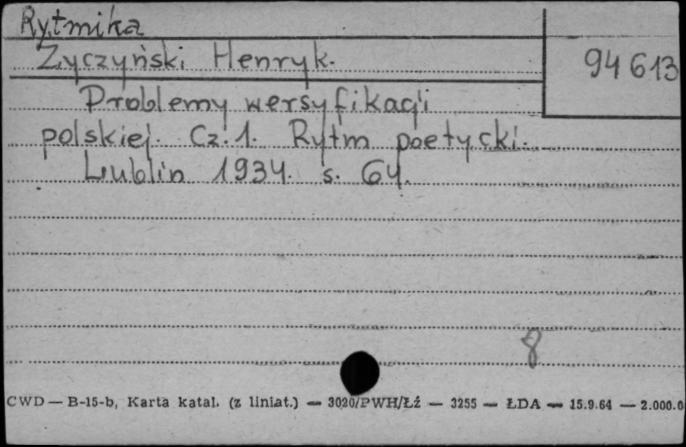 Rytmika
94613
Życzyński Henryk.
Problemy wersyfikacji
polskiej. Cz. 1. Rytm poetycki.
Lublin 1934. s. 64.
8
CWD — B-15-b, Karta katal. (z liniat.) — 3020/PWH/Łź — 3255 — ŁDA — 15.9.64 — 2.000.0